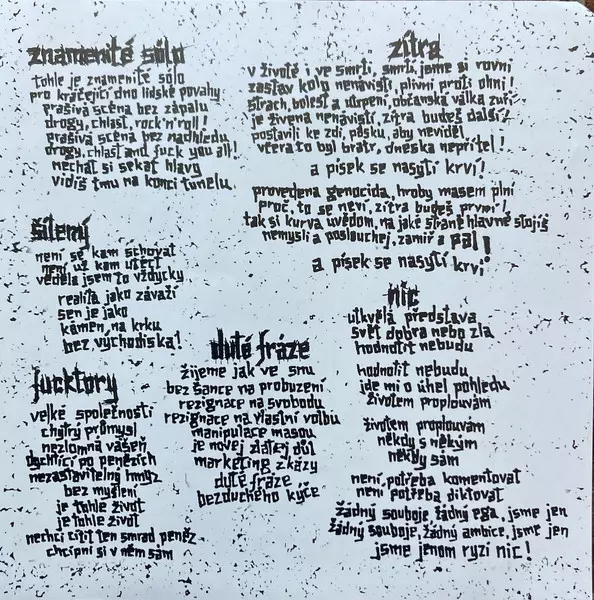 znamenité sólo
tohle je znamenité sólo
pro kráčející dno lidské povahy
prašivá scéna bez zápalu
drogy, chlast, rock'n'roll!
prašivá scéna bez nadhledu
drogy, chlast and fuck you all!
nechat si sekat hlavy
vidíš tmu na konci tunelu.
zítra
v životě i ve smrti, smrti, jsme si rovni
zastav kolo nenávisti, plivni proti ohni!
strach, bolest a utrpení, občanská válka zuří
je živena nenávistí, zítra budeš další!
postavili ke zdi, pásku, aby neviděl
včera to byl bratr, dneska nepřítel!
a písek se nasytí krví!
provedena genocida, hroby masem plní
proč, to se neví, zítra budeš první!
tak si kurva uvědom, na jaké straně hlavně stojíš
nemysli a poslouchej, zamiř a pal!
a písek se nasytí krví
šílený
není se kam schovat
není už kam utéct
věděla jsem to vždycky
realita jako závaží
sen je jako
kámen na krku
bez východiska!
fucktory
velké společnosti
chytrý průmysl
nezlomná vášeň
dychtící po penězích
nezastavitelný hmyz
bez myšlení
je tohle život
je tohle život
nechci cítit ten smrad peněz
chcípni si v něm sám
duté fráze
žijeme jak ve snu
bez šance na probuzení
rezignace na svobodu
rezignace na vlastní volbu
manipulace masou
je novej zlatej důl
marketing zkázy
duté fráze
bezduchého kýče
nic
utkvělá představa
svět dobra nebo zla
hodnotit nebudu
hodnotit nebudu
jde mi o úhel pohledu
životem proplouvám
životem proplouvám
někdy s někým
někdy sám
není potřeba komentovat
není potřeba diktovat
žádný souboje, žádný ega, jsme jen
žádný souboje, žádný ambice, jsme jen
jsme jenom ryzí nic!